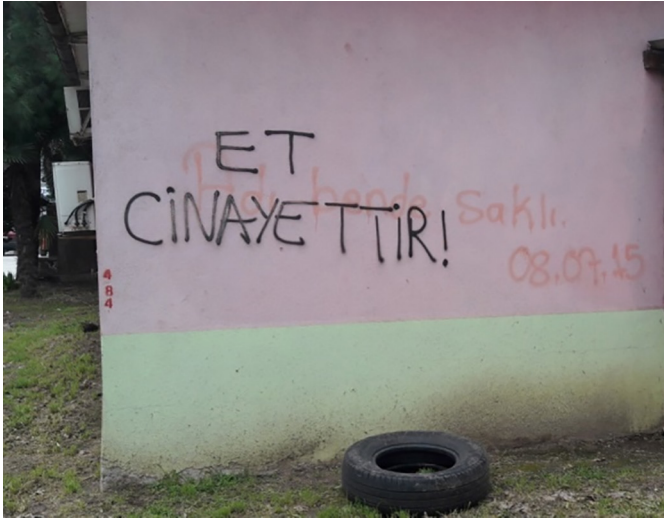 ET
CİNAYETTİR!
Adı bende saklı.
08.07.15
484